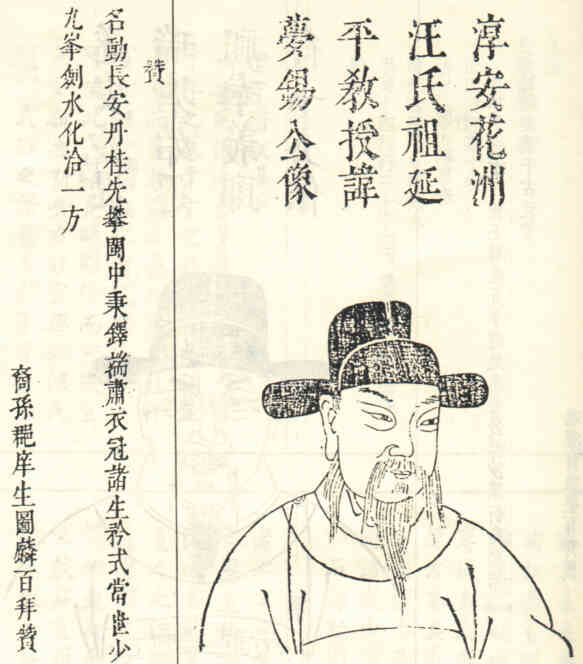 淳安花洲
汪氏祖延
平敎授諱
夢錫公像
贊
名動長安丹桂先攀閩中秉鐸端肅衣冠諸生矜式當世少
九峯劍水化洽一方
裔孫庠生圖麟百拜贊